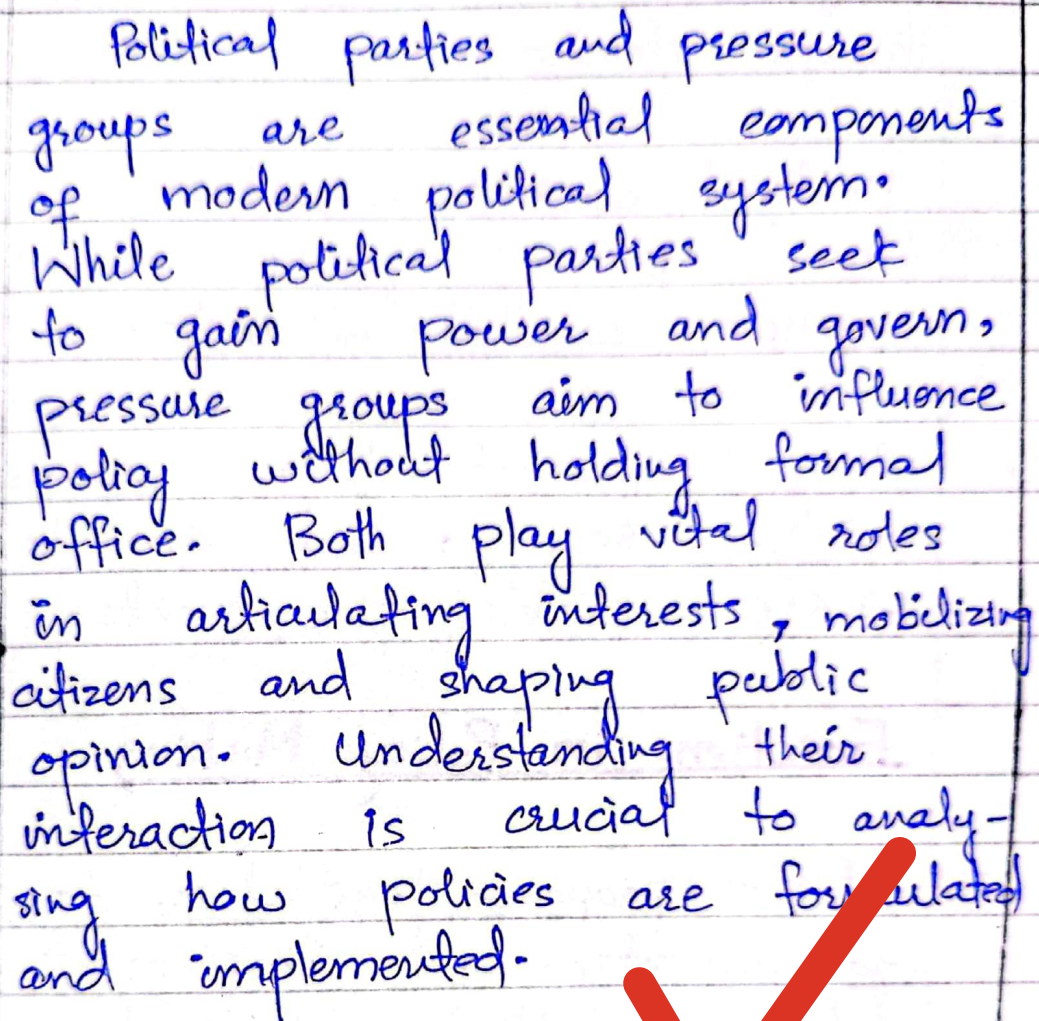 Political parties and pressure
groups are essential components
of modern political system.
While political parties seek
to gain power and govern,
pressure groups aim to influence
policy without holding formal
office. Both play vital roles
in articulating interests, mobilizing
citizens and shaping public
opinion. Understanding their
interaction is crucial to analy-
sing how policies are formulated
and implemented.